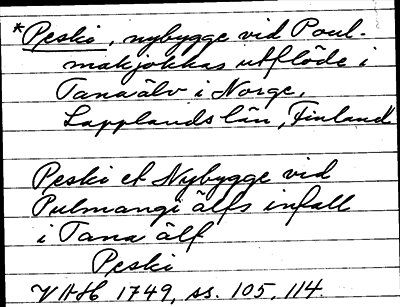 *Peski, nybygge vid Poul-
makjokkas utflöde i
Tanaälv i Norge,
Lapplands län, Finland
Peski et Nybygge vid
Pulmangi älfs infall
i Tana älf
Peski
VAH 1749, ss. 105, 114.